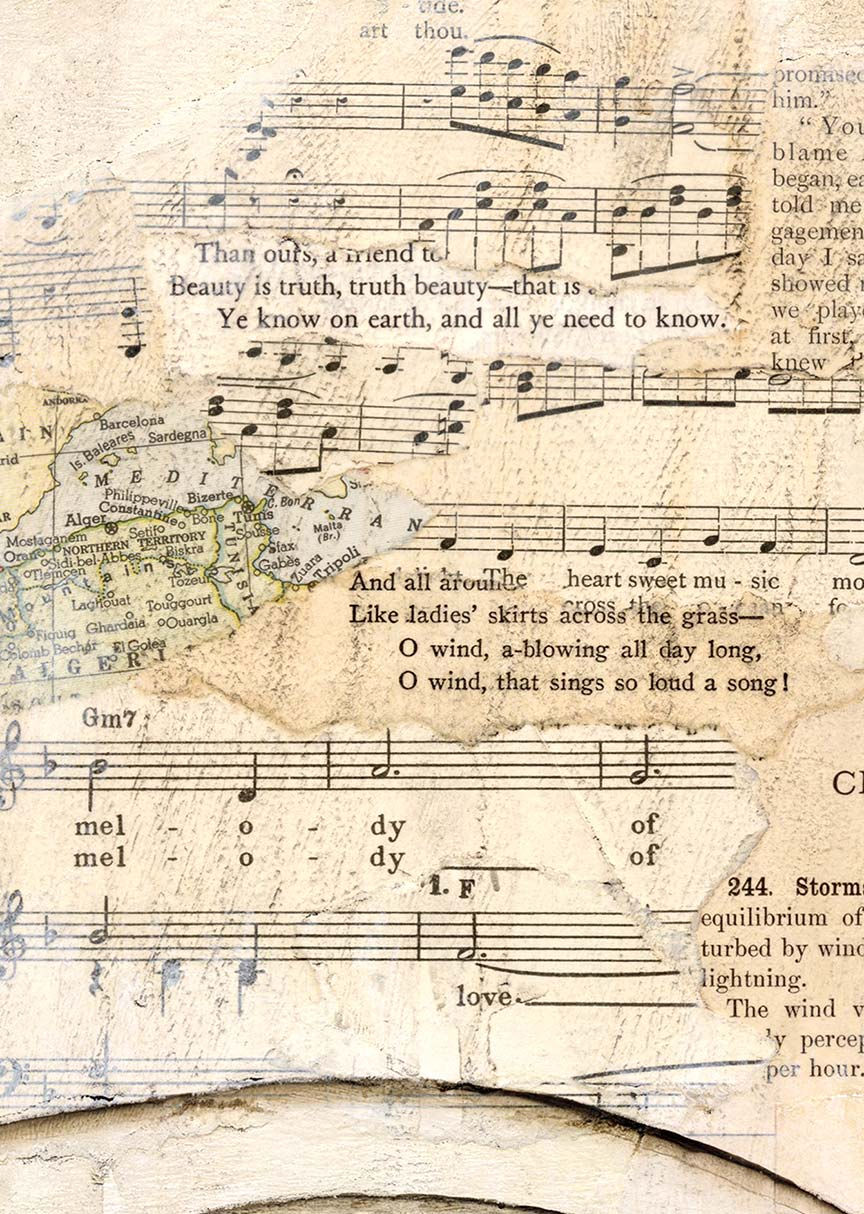 art thou.
promised
him.”
“ You
blame
began, ea
told me
gagemen
day I sa
showed
we playe
at first,
knew
Than ours, a friend to
Beauty is truth, truth beauty—that is
Ye know on earth, and all ye need to know.
ANDORRA
Barcelona
Is. Baleares Sardegna
A I N
rid
M E D I T E R R A N
Philippeville Bizerte C. Bon
Constantine Bône Tunis
Alger Setif Sousse Malta
(Br.)
Mostaganem
Oran NORTHERN TERRITORY Sfax
Sidi-bel-Abbes Biskra Gabès
Tlemcen Tozeur Zuara Tripoli
TUNISIA
Laghouat Touggourt
Figuig Ghardaia Ouargla
Colomb Bechar El Golea
A L G E R I
And all around The heart sweet mu - sic mo
Like ladies’ skirts across the grass—
O wind, a-blowing all day long,
O wind, that sings so loud a song!
Gm7
mel - o - dy of
mel - o - dy of
1. F
love
244. Storms
equilibrium of
turbed by wind
lightning.
The wind v
y percep
per hour.